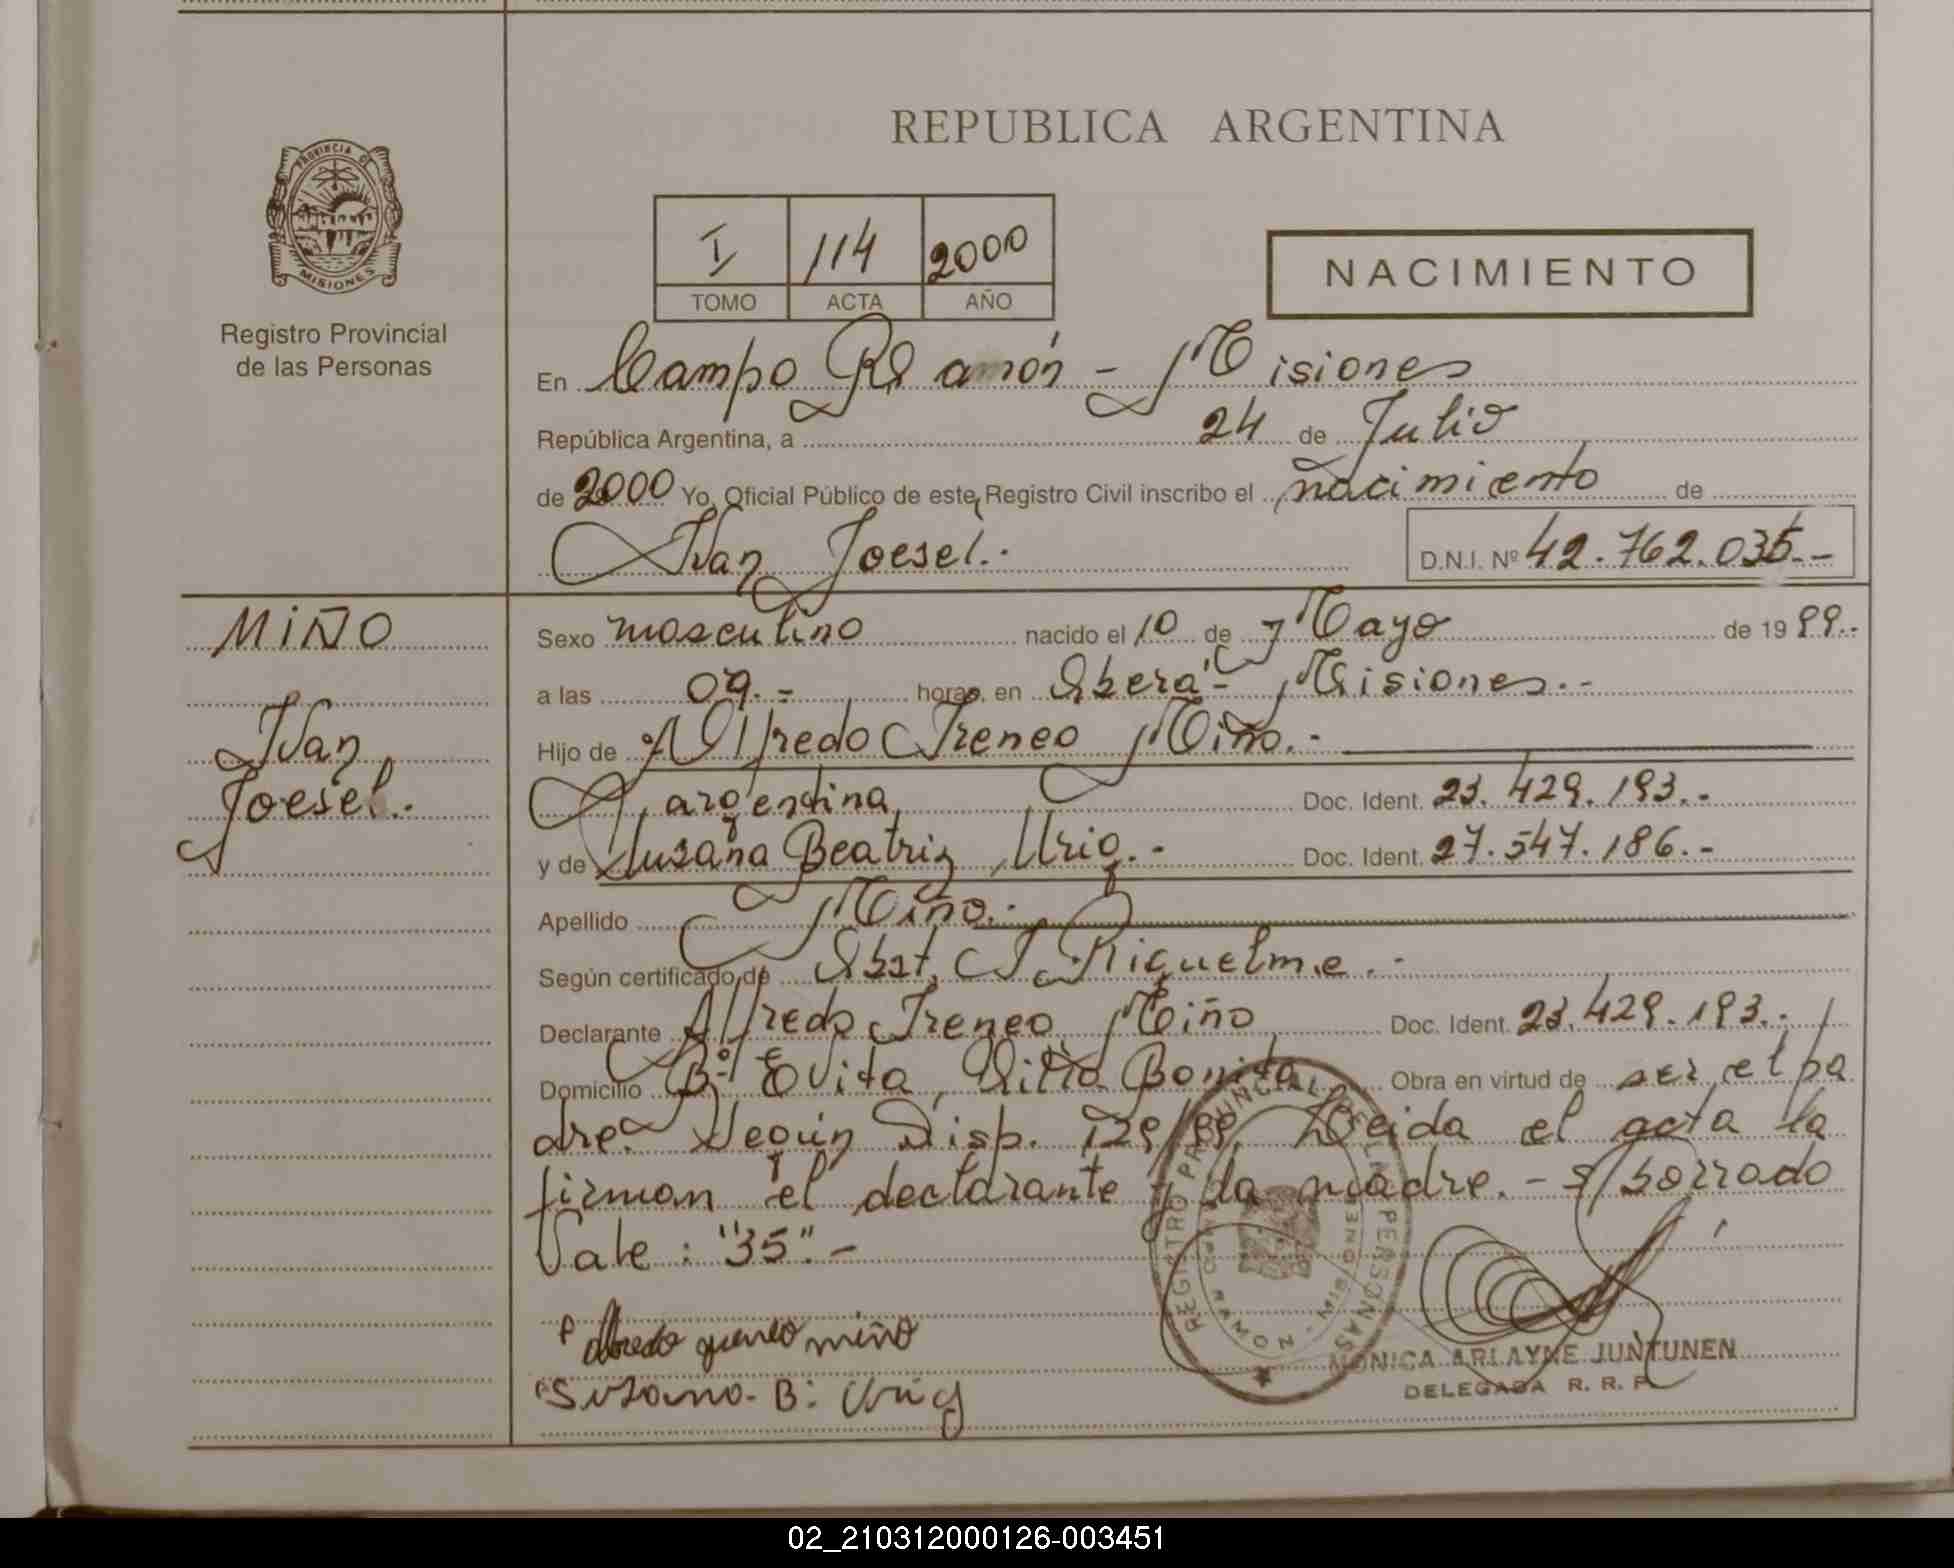 REPUBLICA ARGENTINA
PROVINCIA DE
MISIONES
Registro Provincial
de las Personas
I 114 2000
TOMO ACTA AÑO
NACIMIENTO
En Campo Ramón - Misiones
República Argentina, a 24 de Julio
de 2000 Yo, Oficial Público de este Registro Civil inscribo el nacimiento de
Ivan Joesel.- D.N.I. Nº 42.762.035.-
MIÑO
Ivan
Joesel.
Sexo masculino nacido el 10 de Mayo de 1999.-
a las 09.- horas, en Oberá - Misiones.-
Hijo de Alfredo Ireneo Miño.-
argentina Doc. Ident. 23.429.193.-
y de Susana Beatriz Doc. Ident. 27.547.186.-
Apellido Miño.-
Según certificado de Obst. Riquelme.-
Declarante Alfredo Ireneo Miño Doc. Ident. 23.429.193.-
Domicilio Bº Evita, Villa Bonita Obra en virtud de ser el pa
dre. Según Disp. Leida el acta la
firman el declarante y la madre.- s/borrado
Vale: "35".-
Alfredo yreneo miño
Susana. B:
REGISTRO PROVINCIAL DE LAS PERSONAS
CAMPO RAMON - MISIONES
MONICA ARLAYNE JUNTUNEN
DELEGADA R. R. P.
02_210312000126-003451